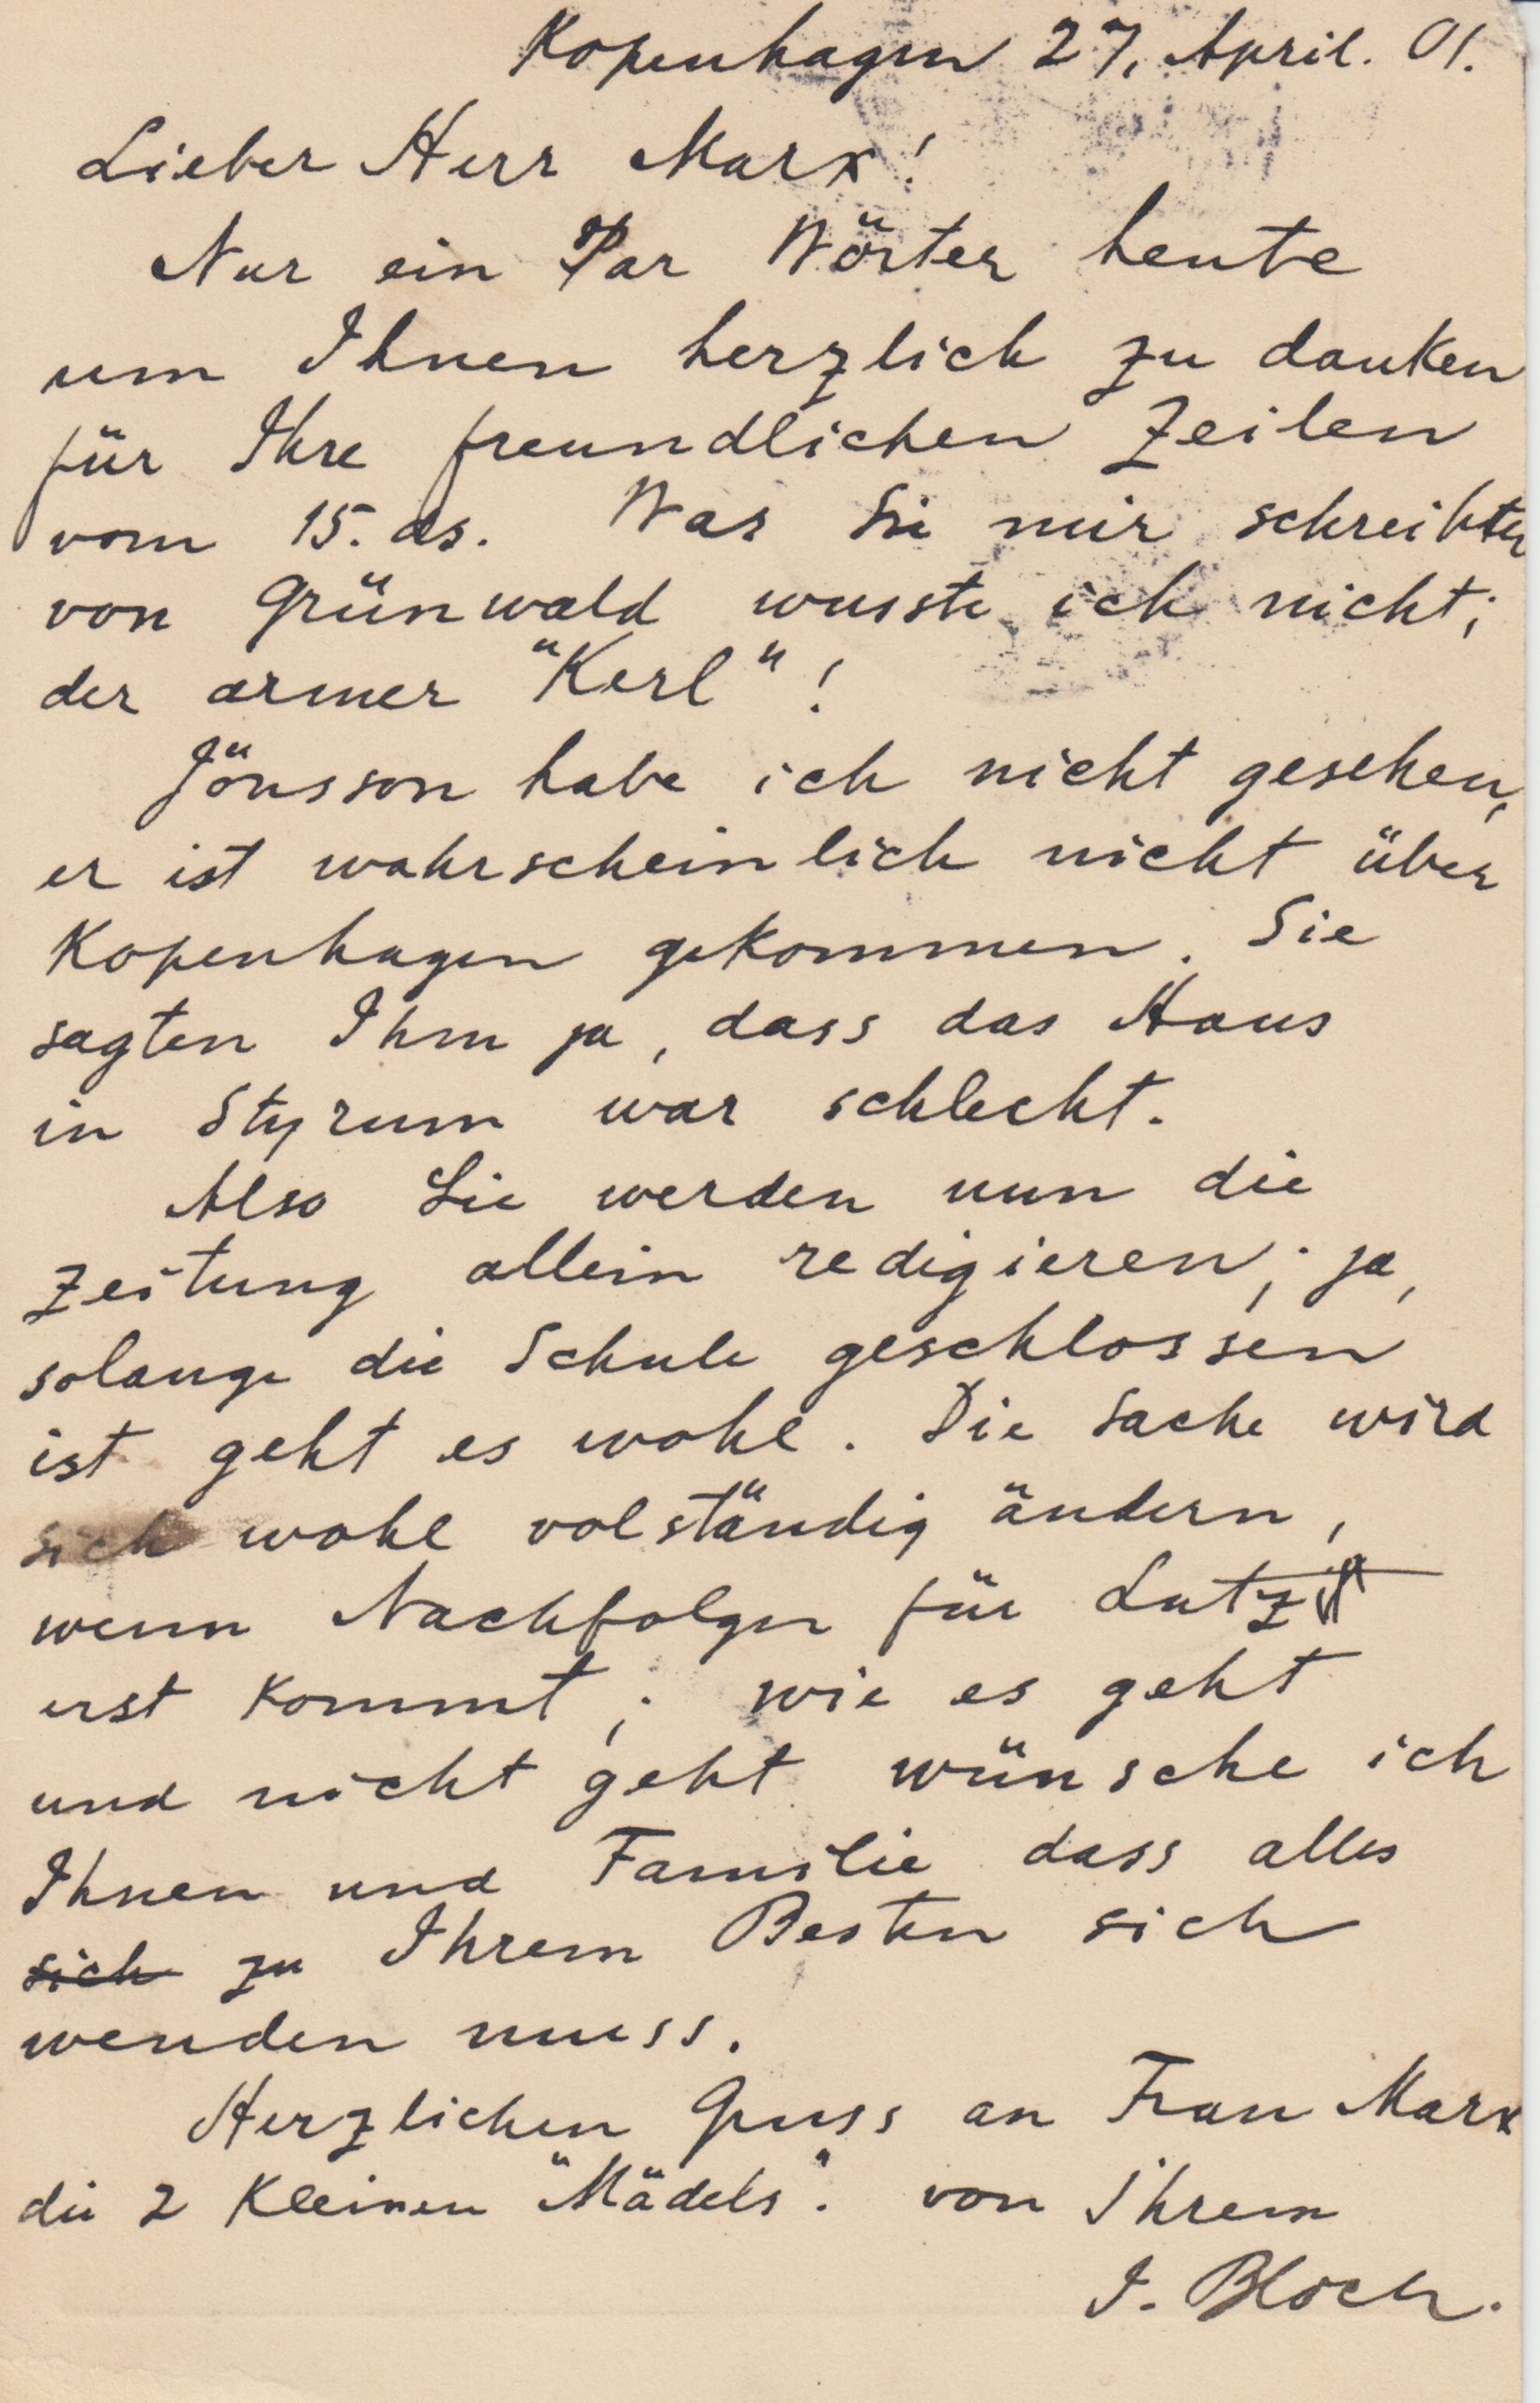 Kopenhagen 27, April. 01.
Lieber Herr Marx!
Nur ein Par Wörter heute
um Ihnen herzlich zu danken
für Ihre freundlichen Zeilen
vom 15. ds. Was Sie mir schreibten
von Grünwald wusste ich nicht;
der armer "Kerl"!
Jönsson habe ich nicht gesehen,
er ist wahrscheinlich nicht über
Kopenhagen gekommen. Sie
sagten Ihm ja, dass das Haus
in Styrum war schlecht.
Also Sie werden nun die
Zeitung allein redigieren; ja,
solange die Schule geschlossen
ist geht es wohl. Die Sache wird
sich wohl volständig ändern,
wenn Nachfolger für Lutz
erst kommt; wie es geht
und nicht geht wünsche ich
Ihnen und Familie dass alles
sich zu Ihrem Besten sich
wenden muss.
Herzlichen Gruss an Frau Marx
die 2 kleinen "Mädels". von Ihrem
I. Bloch.